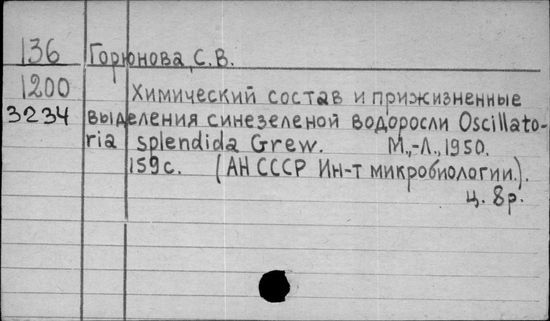 136 Горюнова, С.В.
1200 Химический состав и прижизненные
3234 выделения синезеленой водоросли Oscillato-
ria splendida Grew. М.,-Л., 1950.
159с. (АН СССР Ин-т микробиологии.).
ц. 8р.